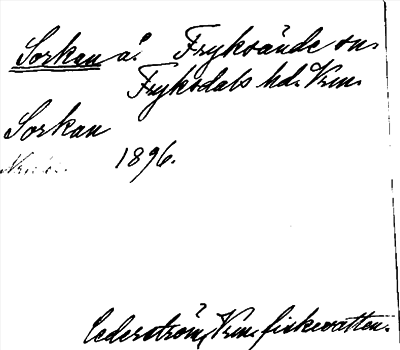 Sorkan å. Fryksände sn.
Fryksdals hd. Vrm.
Sorkan
1896.
Cederström, Vrm. fiskevatten.